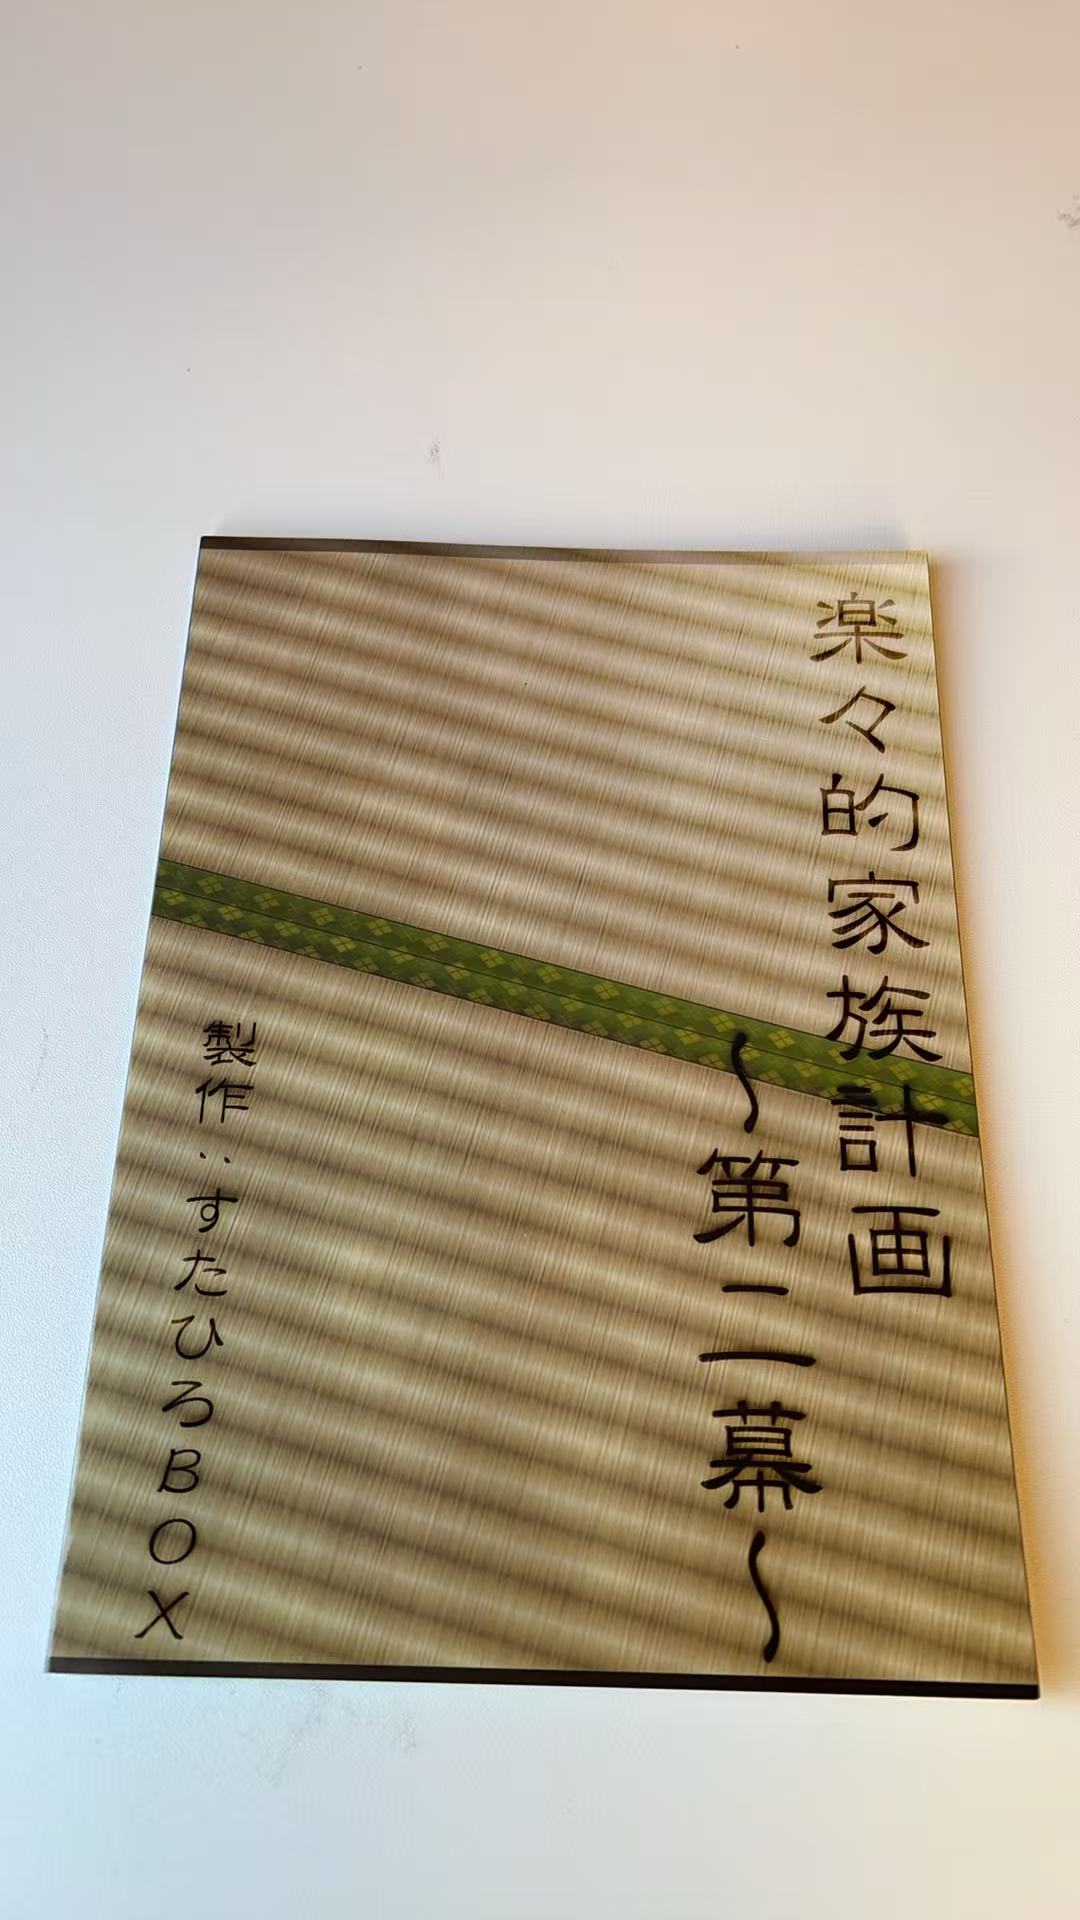 楽々的家族計画
～第二幕～
製作：すたひろBOX